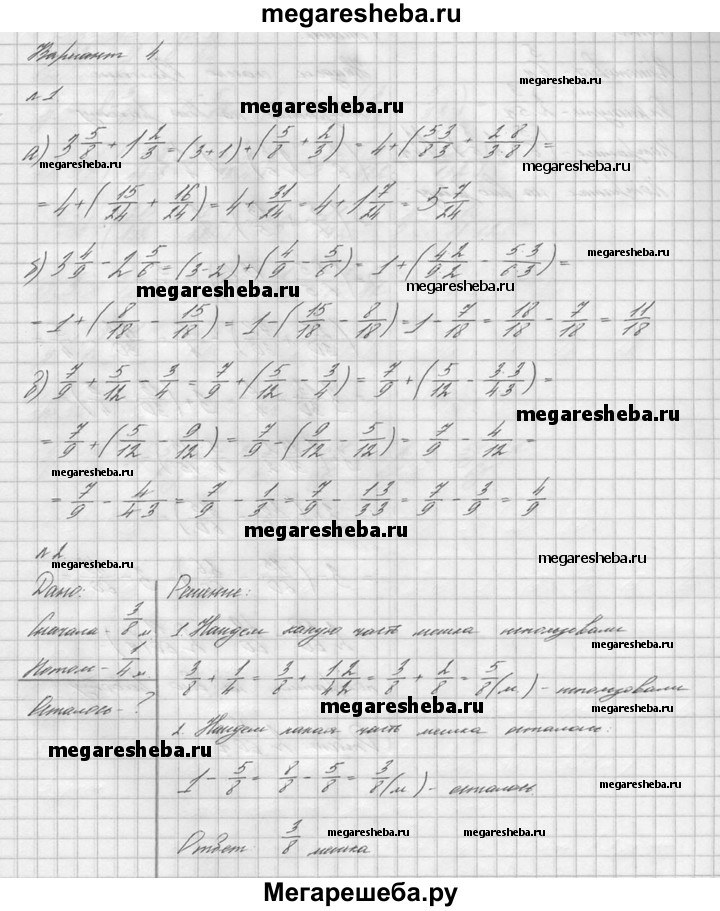 megaresheba.ru
Вариант 4.
megaresheba.ru
№1
megaresheba.ru
megaresheba.ru
а) 3 5/8 + 1 2/3 = (3+1) + (5/8 + 2/3) = 4 + (5·3/8·3 + 2·8/3·8) =
megaresheba.ru
= 4 + (15/24 + 16/24) = 4 + 31/24 = 4 + 1 7/24 = 5 7/24
б) 3 4/9 - 2 5/6 = (3-2) + (4/9 - 5/6) = 1 + (4·2/9·2 - 5·3/6·3) =
megaresheba.ru
megaresheba.ru
megaresheba.ru
= 1 + (8/18 - 15/18) = 1 - (15/18 - 8/18) = 1 - 7/18 = 18/18 - 7/18 = 11/18
в) 7/9 + 5/12 - 3/4 = 7/9 + (5/12 - 3/4) = 7/9 + (5/12 - 3·3/4·3) =
megaresheba.ru
= 7/9 + (5/12 - 9/12) = 7/9 - (9/12 - 5/12) = 7/9 - 4/12 =
megaresheba.ru
= 7/9 - 4/4·3 = 7/9 - 1/3 = 7/9 - 1·3/3·3 = 7/9 - 3/9 = 4/9
megaresheba.ru
№2
megaresheba.ru
megaresheba.ru
Дано:
Сначала - 3/8 м
Потом - 1/4 м
Осталось - ?
Решение:
1. Найдем какую часть мешка использовали
megaresheba.ru
megaresheba.ru
3/8 + 1/4 = 3/8 + 1·2/4·2 = 3/8 + 2/8 = 5/8 (м) - использовали
megaresheba.ru
megaresheba.ru
2. Найдем какая часть мешка осталось:
megaresheba.ru
1 - 5/8 = 8/8 - 5/8 = 3/8 (м) - осталось
megaresheba.ru
megaresheba.ru
megaresheba.ru
Ответ 3/8 мешка
Мегарешеба.ру